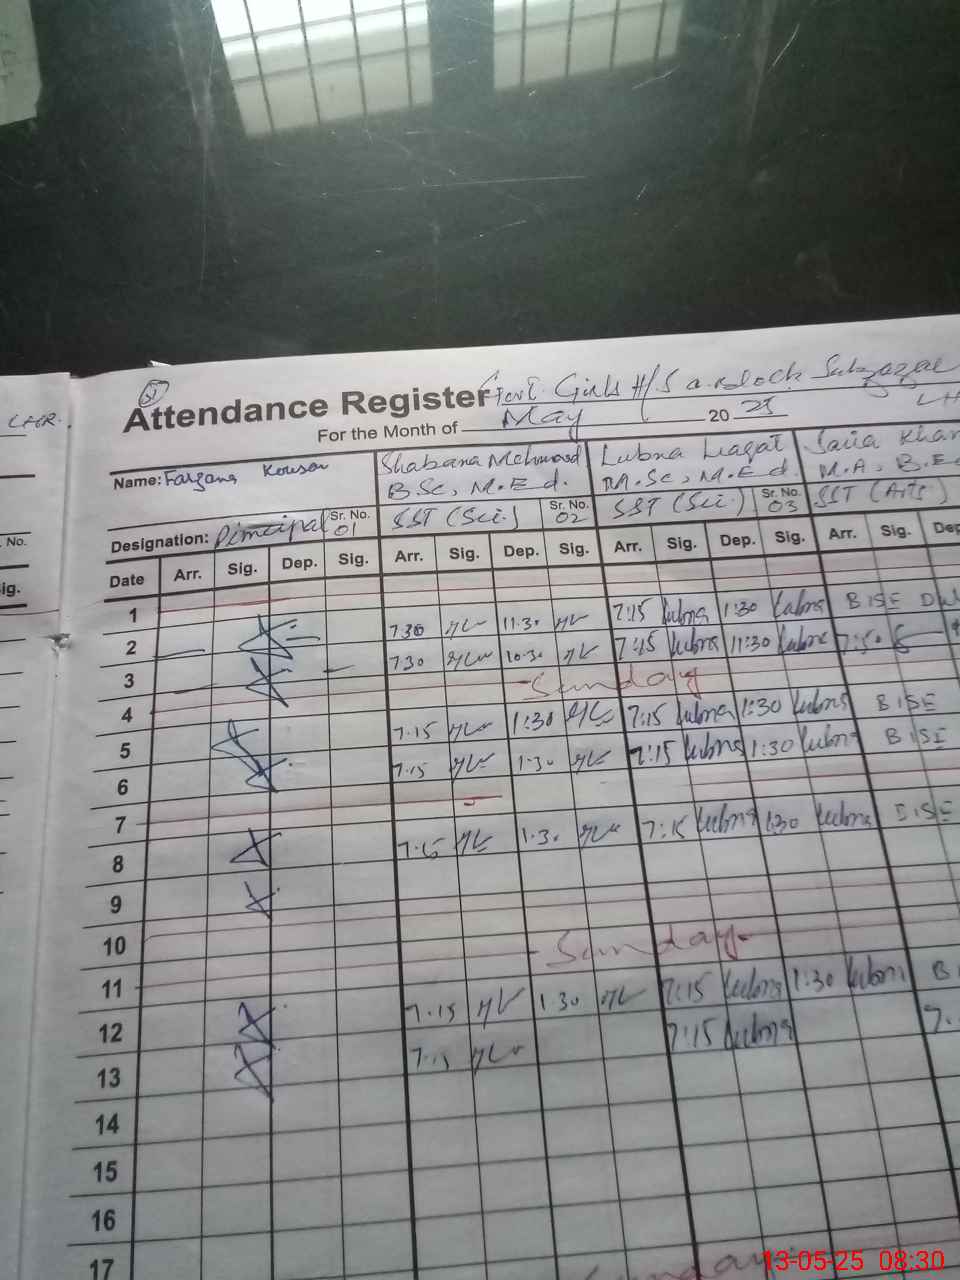 LHR.
No.
ig.
Attendance Register Govt Girls H/S a.Block Sabzazar
LH
For the Month of May 20 25
Name: Farzana Kousar Shabana Mehmood Lubna Liaqat Saiia Khan
B.Sc, M.Ed. M.Sc, M.Ed. M.A, B.Ed
Designation: Principal Sr. No. 01 SST (Sci.) Sr. No. 02 SST (Sci.) Sr. No. 03 SST (Arts)
Date Arr. Sig. Dep. Sig. Arr. Sig. Dep. Sig. Arr. Sig. Dep. Sig. Arr. Sig. Dep
1
2 7:30 11:30 7:15 Lubna 1:30 Lubna BISE
3 7:30 10:30 7:15 Lubna 11:30 Lubna 7:50
4 Sunday
5 7:15 1:30 7:15 Lubna 1:30 Lubna BISE
6 7:15 1:30 7:15 Lubna 1:30 Lubna BISE
7
8 7:15 1:30 7:15 Lubna 1:30 Lubna BISE
9
10
11 Sunday
12 7:15 1:30 7:15 Lubna 1:30 Lubna B
13 7:15 7:15 Lubna 7.
14
15
16
17
13-05-25 08:30